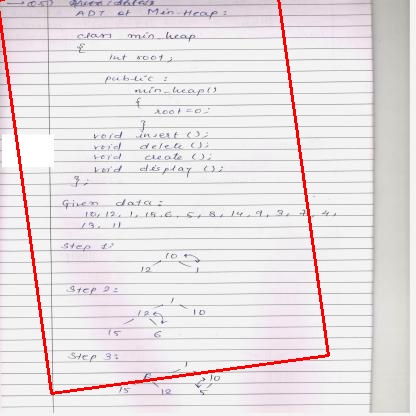 ADT of Min-Heap:
class min_heap
{
int root;
public:
min_heap()
{
root=0;
}
void insert();
void delete();
void create();
void display();
};
Given data:
10, 12, 1, 15, 6, 5, 8, 14, 9, 3, 7, 4,
13, 11
Step 1:
10
12 1
Step 2:
1
12 10
15 6
Step 3:
1
6 10
15 12 5